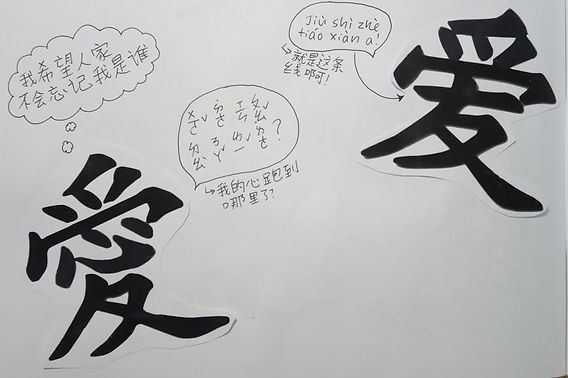 我希望人家
不会忘记我是谁
愛
ㄨㄛˇ ㄉㄜ˙ ㄒㄧㄣ ㄆㄠˇ
ㄉㄠˋ ㄋㄚˇ ㄌㄧˇ ㄌㄜ˙?
我的心跑到
哪里了?
Jiù shì zhè
tiáo xiàn a!
就是这条
线啊!
爱